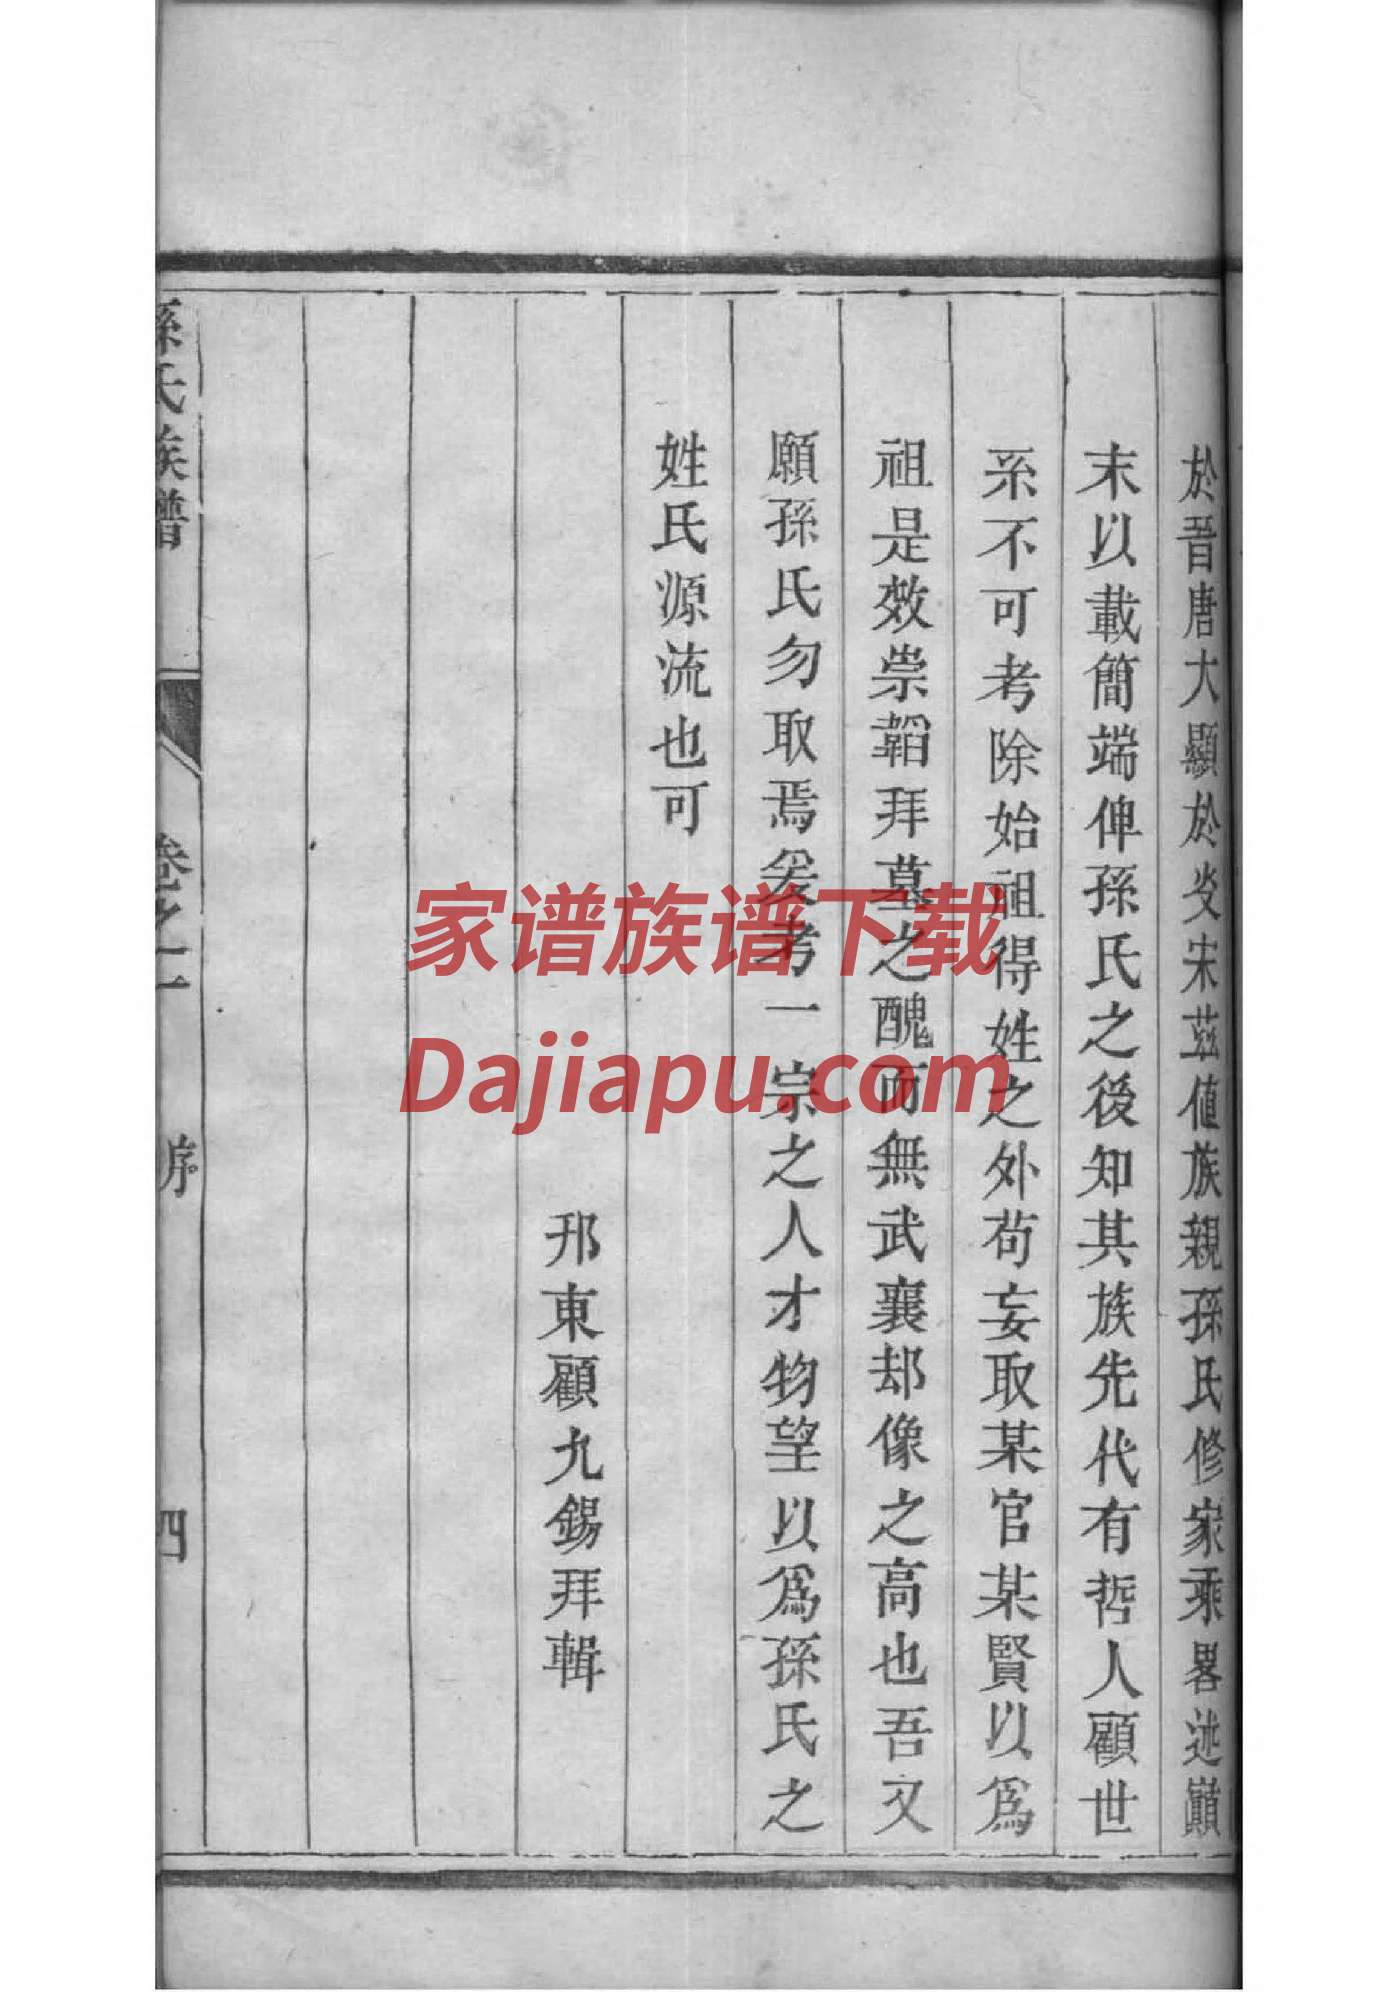 於晋唐大顯於炎宋茲値族親孫氏修家乘畧述巔
末以載簡端俾孫氏之後知其族先代有哲人顧世
系不可考除始祖得姓之外苟妄取某官某賢以爲
祖是效崇韜拜墓之醜而無武襄却像之高也吾又
願孫氏勿取焉爰考一宗之人才物望以爲孫氏之
姓氏源流也可
邗東顧九錫拜輯
孫氏族譜 卷之一 序 四
家谱族谱下载
Dajiapu.com